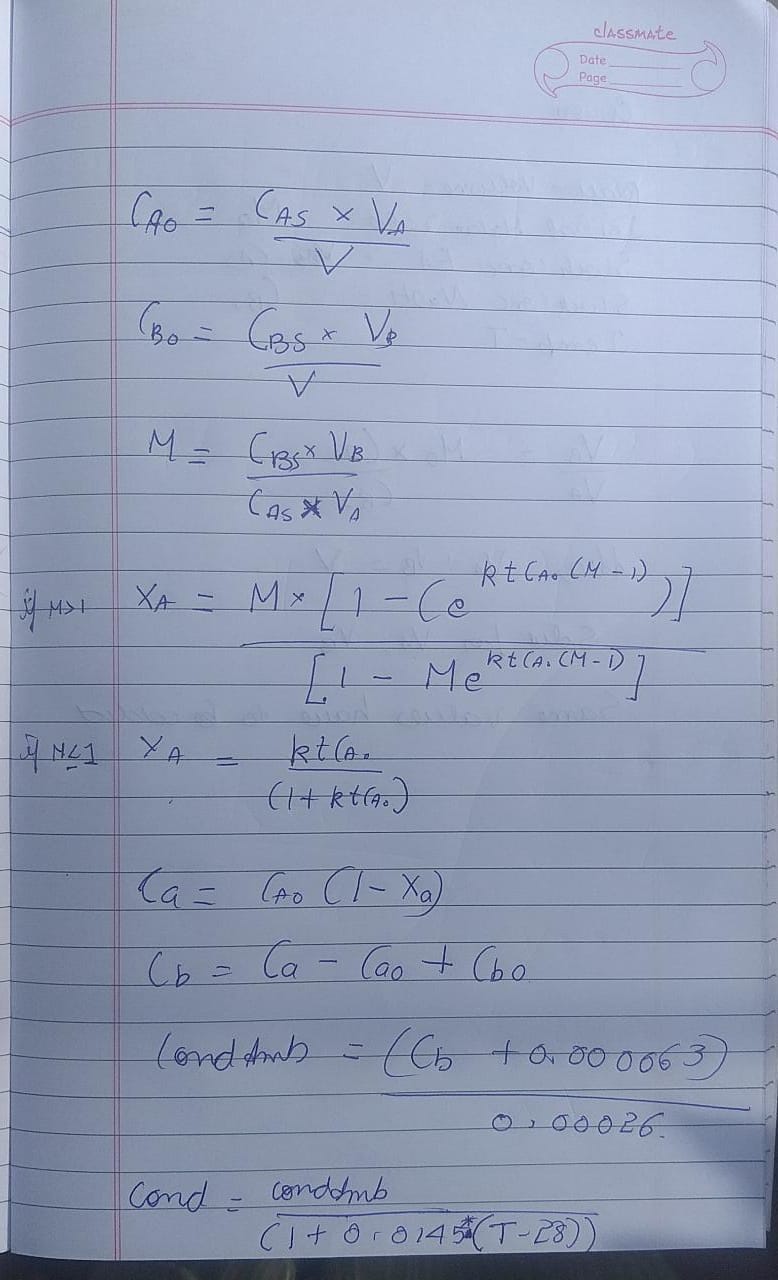 classmate
Date
Page
C_A0 = C_AS × V_A / V
C_B0 = C_BS × V_B / V
M = C_BS × V_B / C_AS × V_A
if M>1 X_A = M × [1 - (e^{ktC_A0(M-1)})] / [1 - Me^{ktC_A0(M-1)}]
if M≤1 X_A = ktC_A0 / (1 + ktC_A0)
Ca = C_A0 (1 - Xa)
Cb = Ca - Cao + Cbo
CondAmb = (Cb + 0.000063) / 0.00026
Cond = condAmb / (1 + 0.0145*(T-28))